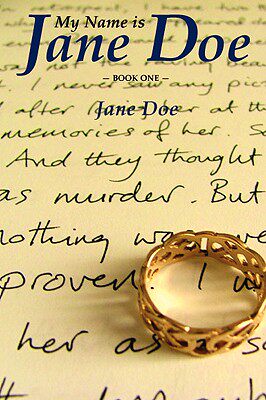 My Name is
Jane Doe
– BOOK ONE –
Jane Doe
I never saw any pic
after her at the
memories of her. So
And they thought
as murder. But
nothing was
proven. I w
her as a s